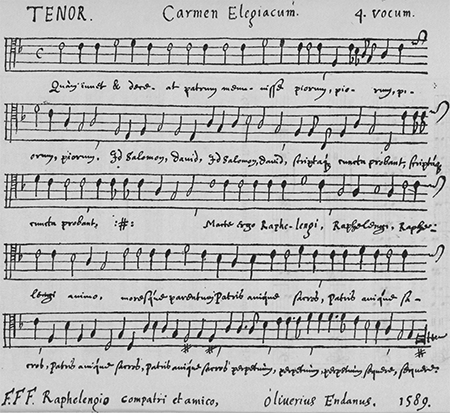 TENOR. Carmen Elegiacum. 4. vocum.
Quam iuvet & dece- at patrum memi- nisse piorum, pio- rum, pi-
orum, piorum. Id Salomon, david, Id Salomon, david, scriptaq́ cuncta probant, scriptaq́
cuncta probant, :#: Marte ergo Raphe-lengi, Raphelengi, Raphe-
lengi animo, moresque parentum Patris avique sacros, Patris avique sa-
cros, Patris avique sacros, Patris avique sacros perpetim, perpetim, perpetim sequere, sequere.
F.F.F. Raphelengio compatri et amico, Oliverius Endanus. 1589.